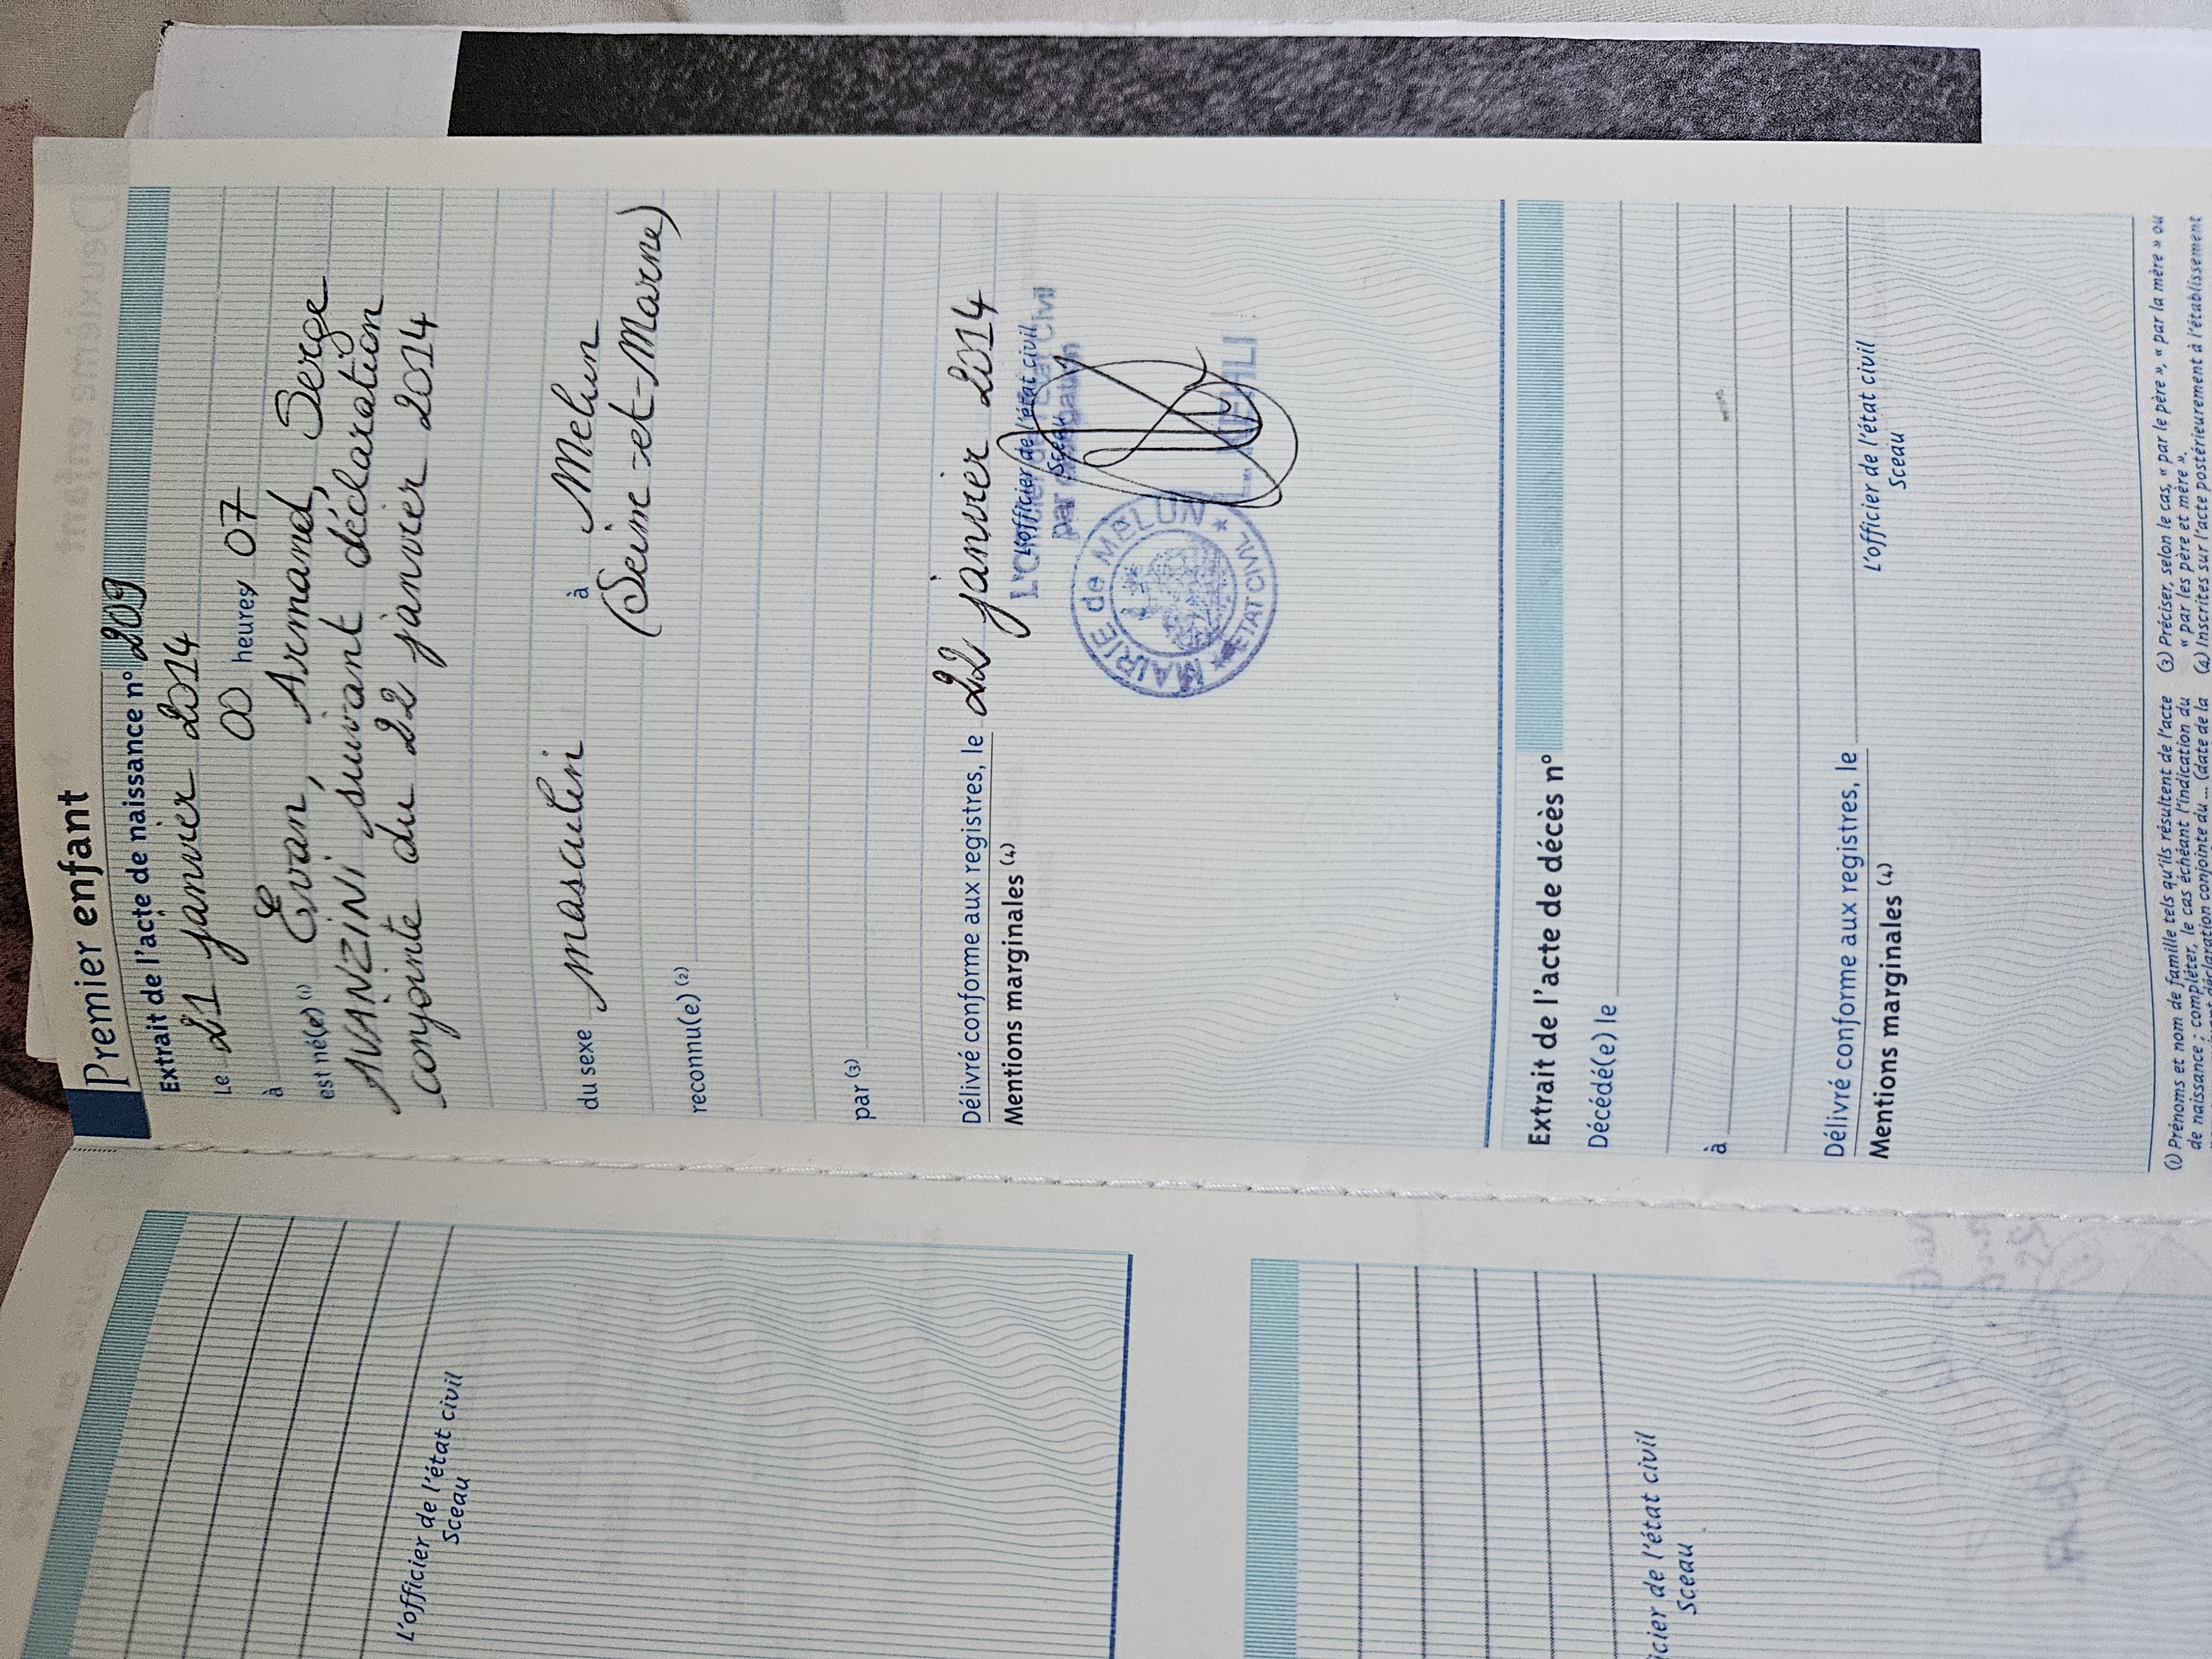 Premier enfant
Extrait de l'acte de naissance n° 209
Le 21 janvier 2014
à 00 heures 07
est né(e) (1) Evan, Armand, Serge
AVANZINI suivant déclaration
conjointe du 22 janvier 2014
du sexe masculin à Melun
(Seine-et-Marne)
reconnu(e) (2)
par (3)
Délivré conforme aux registres, le 22 janvier 2014
Mentions marginales (4)
L'officier de l'état civil
Sceau
L'Officier de l'Etat Civil
par délégation
MAIRIE de MELUN
* ETAT CIVIL *
Extrait de l'acte de décès n°
Décédé(e) le
à
Délivré conforme aux registres, le
Mentions marginales (4)
L'officier de l'état civil
Sceau
(1) Prénoms et nom de famille tels qu'ils résultent de l'acte
de naissance ; compléter, le cas échéant l'indication du
déclaration conjointe du... (date de la
(3) Préciser, selon le cas, « par le père », « par la mère » ou
« par les père et mère ».
(4) Inscrites sur l'acte postérieurement à l'établissement
L'officier de l'état civil
Sceau
icier de l'état civil
Sceau